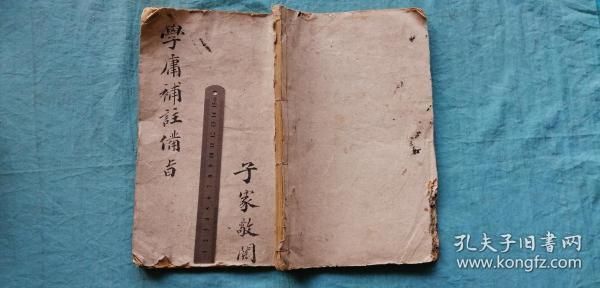 學庸補註備旨
子家敬閱
孔夫子旧书网
www.kongfz.com